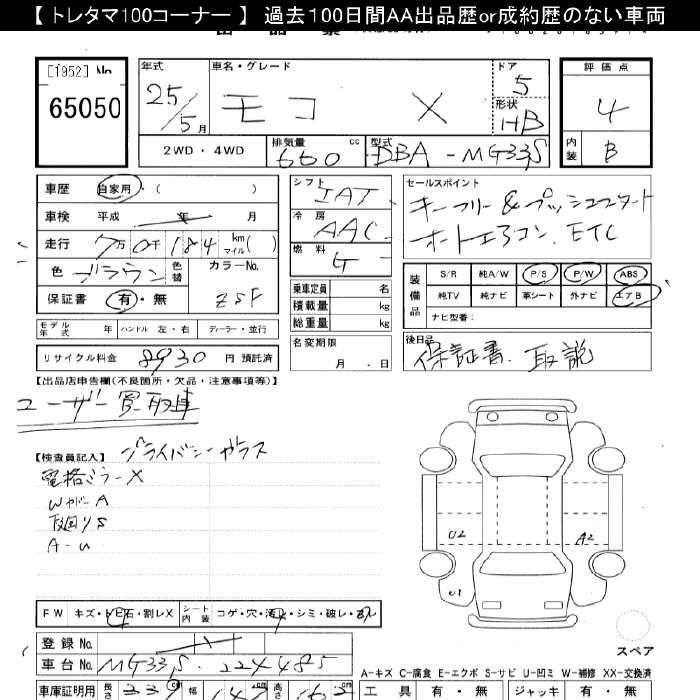 【トレタマ100コーナー】 過去100日間AA出品歴or成約歴のない車両
[1952] No
65050
年式 25/5月
車名・グレード モコ X
ドア 5
形状 HB
評価点 4
内装 B
2WD・4WD
排気量 660 cc
型式 DBA-MG33S
車歴 自家用・( )
車検 平成 年 月
走行 7万0千184 km マイル( )
色 ブラウン 色替
カラーNo. ZSF
保証書 有・無
シフト IAT
冷房 AAC
燃料 G
乗車定員 名
積載量 kg
総重量 kg
セールスポイント
キーフリー&プッシュスタート
オートエアコン. ETC
装備品
S/R 純A/W P/S P/W ABS
純TV 純ナビ 革シート 外ナビ エアB
ナビ型番:
モデル年式 年 ハンドル 左・右 ディーラー・並行
リサイクル料金 8930 円 預託済
名変期限 月 . 日
後日品
保証書. 取説
【出品店申告欄(不良箇所・欠品・注意事項等)】
ユーザー買取車
【検査員記入】 プライバシーガラス
電格ミラーX
WカバーA
下回りS
A-U
U2
A2
U1
FW キズ・トビ石・割レX
シート内装 コゲ・穴・汚レ・シミ・破レ・スレ
スペア
登録No.
車台No. MG33S-224485
A-キズ C-腐食 E-エクボ S-サビ U-凹ミ W-補修 XX-交換済
車庫証明用 長さ 339 幅 147 高さ 162
工具 有・無 ジャッキ 有・無